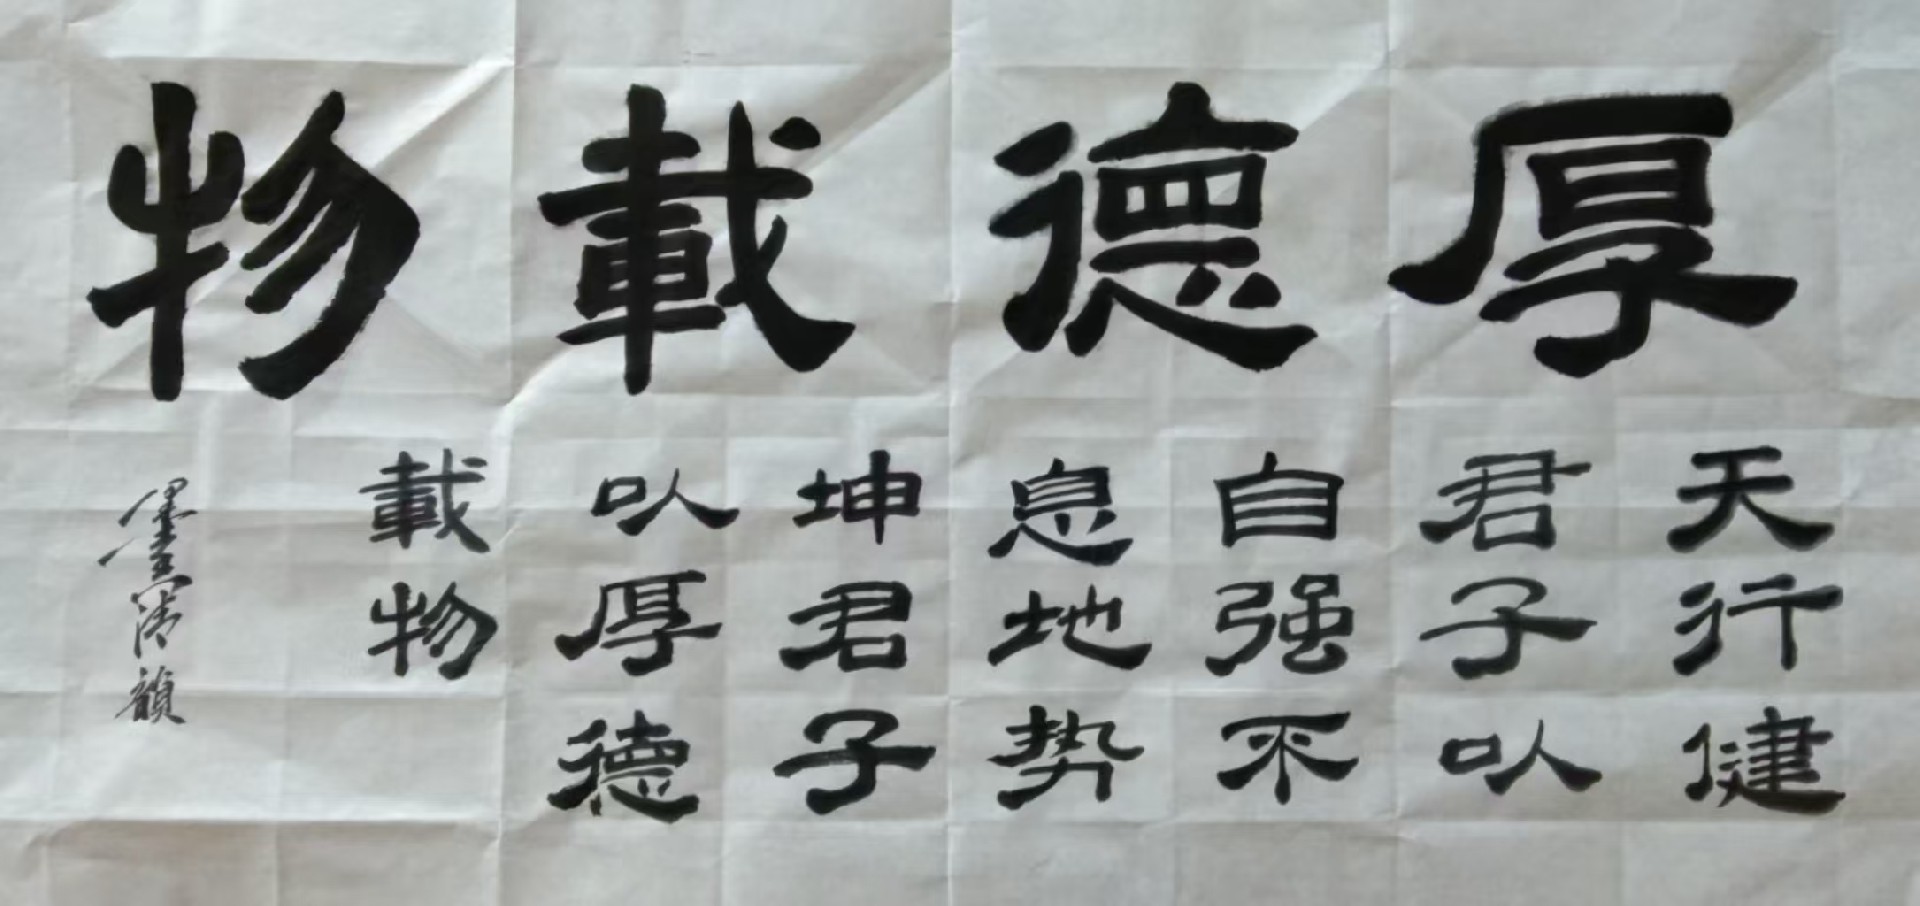 厚德載物
天行健
君子以
自强不
息地势
坤君子
以厚德
載物
墨清韻